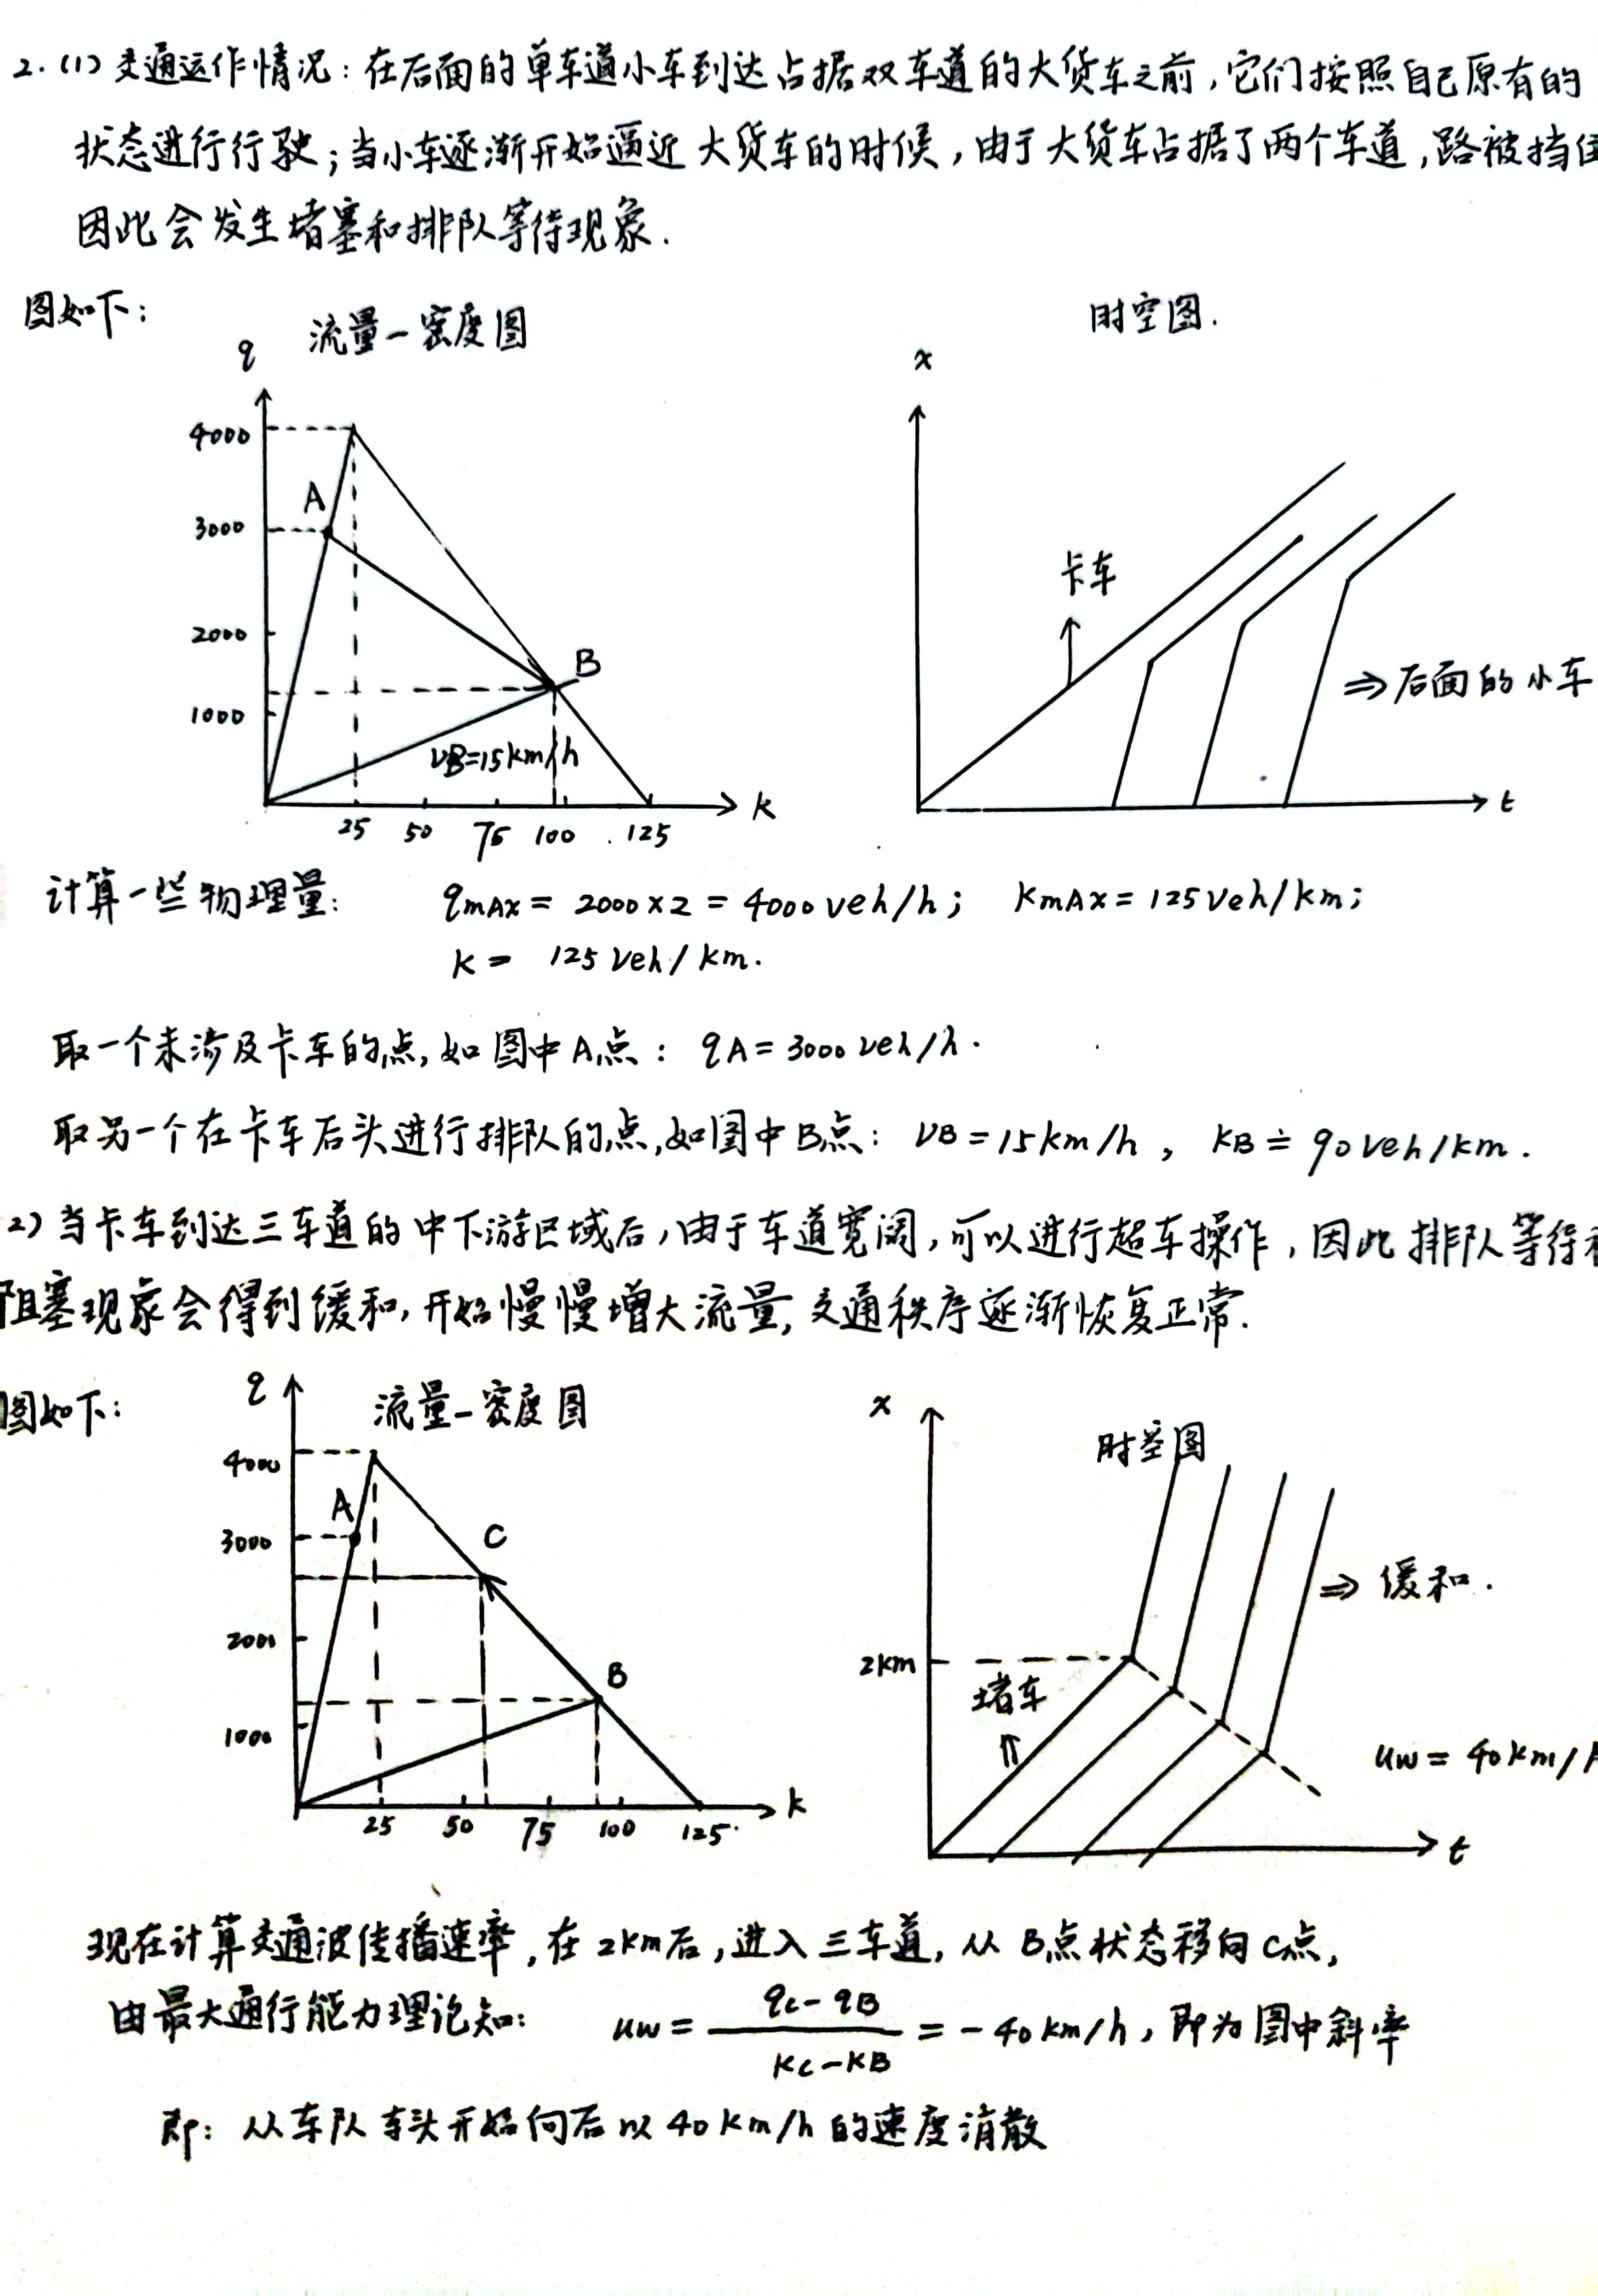 2.(1) 交通运作情况：在后面的单车道小车到达占据双车道的大货车之前，它们按照自己原有的
状态进行行驶；当小车逐渐开始逼近大货车的时候，由于大货车占据了两个车道，路被挡住
因此会发生堵塞和排队等待现象.
图如下：
流量-密度图
q
4000
A
3000
2000
B
1000
VB=15km/h
25 50 75 100 125
k
时空图.
x
卡车
⇒后面的小车
t
计算一些物理量： qmAx = 2000×2 = 4000veh/h； kmAx = 125veh/km；
k = 125veh/km.
取一个未涉及卡车的点，如图中A点： qA = 3000veh/h.
取另一个在卡车后头进行排队的点，如图中B点： VB = 15km/h ， kB ≐ 90veh/km.
2) 当卡车到达三车道的中下游区域后，由于车道宽阔，可以进行超车操作，因此排队等待
阻塞现象会得到缓和，开始慢慢增大流量，交通秩序逐渐恢复正常.
图如下：
流量-密度图
q
4000
A
3000
C
2000
B
1000
25 50 75 100 125
k
x
时空图
⇒ 缓和.
2km
堵车
⇑
uw = 40km/
t
现在计算交通波传播速率，在2km后，进入三车道，从B点状态移向C点，
由最大通行能力理论知： uw = (qc-qB)/(kc-kB) = -40km/h，即为图中斜率
即：从车队车头开始向后以40km/h的速度消散